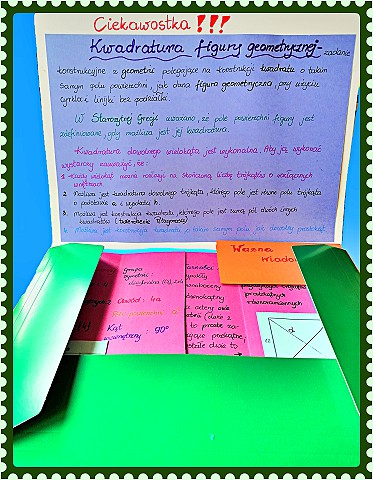 Ciekawostka !!!
Kwadratura figury geometrycznej - zadanie
konstrukcyjne z geometrii polegające na konstrukcji kwadratu o takim
samym polu powierzchni, jak dana figura geometryczna, przy użyciu
cyrkla i linijki bez podziałki.
W Starożytnej Grecji uważano, że pole powierzchni figury jest
zdefiniowane, gdy możliwa jest jej kwadratura.
Kwadratura dowolnego wielokąta jest wykonalna. Aby ją wykonać
wystarczy zauważyć, że:
1. Każdy wielokąt można rozciąć na skończoną liczbę trójkątów o rozłącznych
wnętrzach.
2. Możliwa jest kwadratura dowolnego trójkąta, którego pole jest równe polu trójkąta
o podstawie a i wysokości h.
3. Możliwa jest konstrukcja kwadratu, którego pole jest sumą pól dwóch innych
kwadratów (twierdzenie Pitagorasa)
4. Możliwa jest konstrukcja kwadratu o takim samym polu jak dowolny prostokąt.
Ważna
wiado
Grupa
symetrii:
diedralna
Obwód: 4a
Kąt
wewnętrzny: 90°
to proste za-
prostokątnych
równoramiennych
d